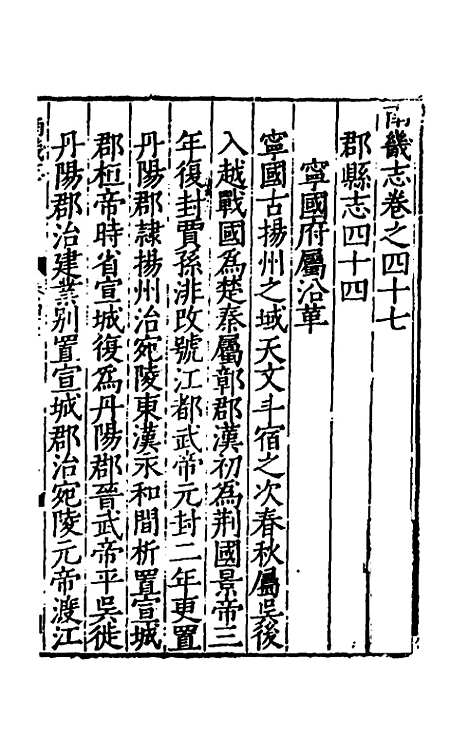 南畿志卷之四十七
郡縣志四十四
寧國府屬沿革
寧國古揚州之域天文斗宿之次春秋屬吳後
入越戰國爲楚秦屬鄣郡漢初爲荆國景帝三
年復封賈孫濞改號江都武帝元封二年更置
丹陽郡隸揚州治宛陵東漢永和間析置宣城
郡桓帝時省宣城復爲丹陽郡晉武帝平吳徙
丹陽郡治建業别置宣城郡治宛陵元帝渡江